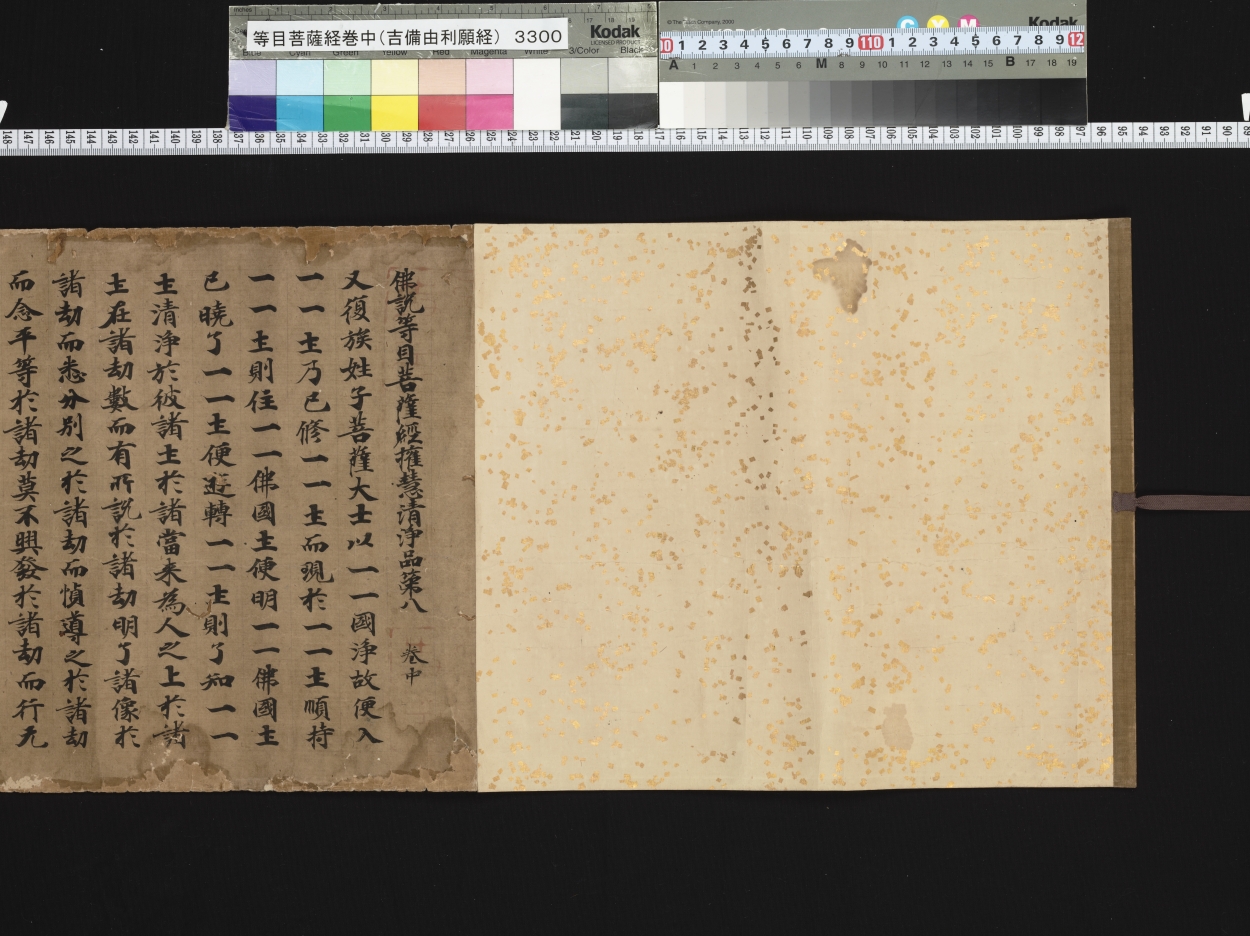 等目菩薩経巻中(吉備由利願経) 3300
佛說等目菩薩經權慧清淨品第八 卷中
又復族姓子菩薩大士以一一國淨故便入
一一主乃已修一一主而現於一一主順持
一一主則住一一佛國主便明一一佛國主
已曉了一一主便遊轉一一主則了知一一
主清淨於彼諸主於諸當来為人之上於諸
主在諸劫數而有所說於諸劫明了諸像於
諸劫而悉分别之於諸劫而慎遵之於諸劫
而念平等於諸劫莫不興發於諸劫而行无